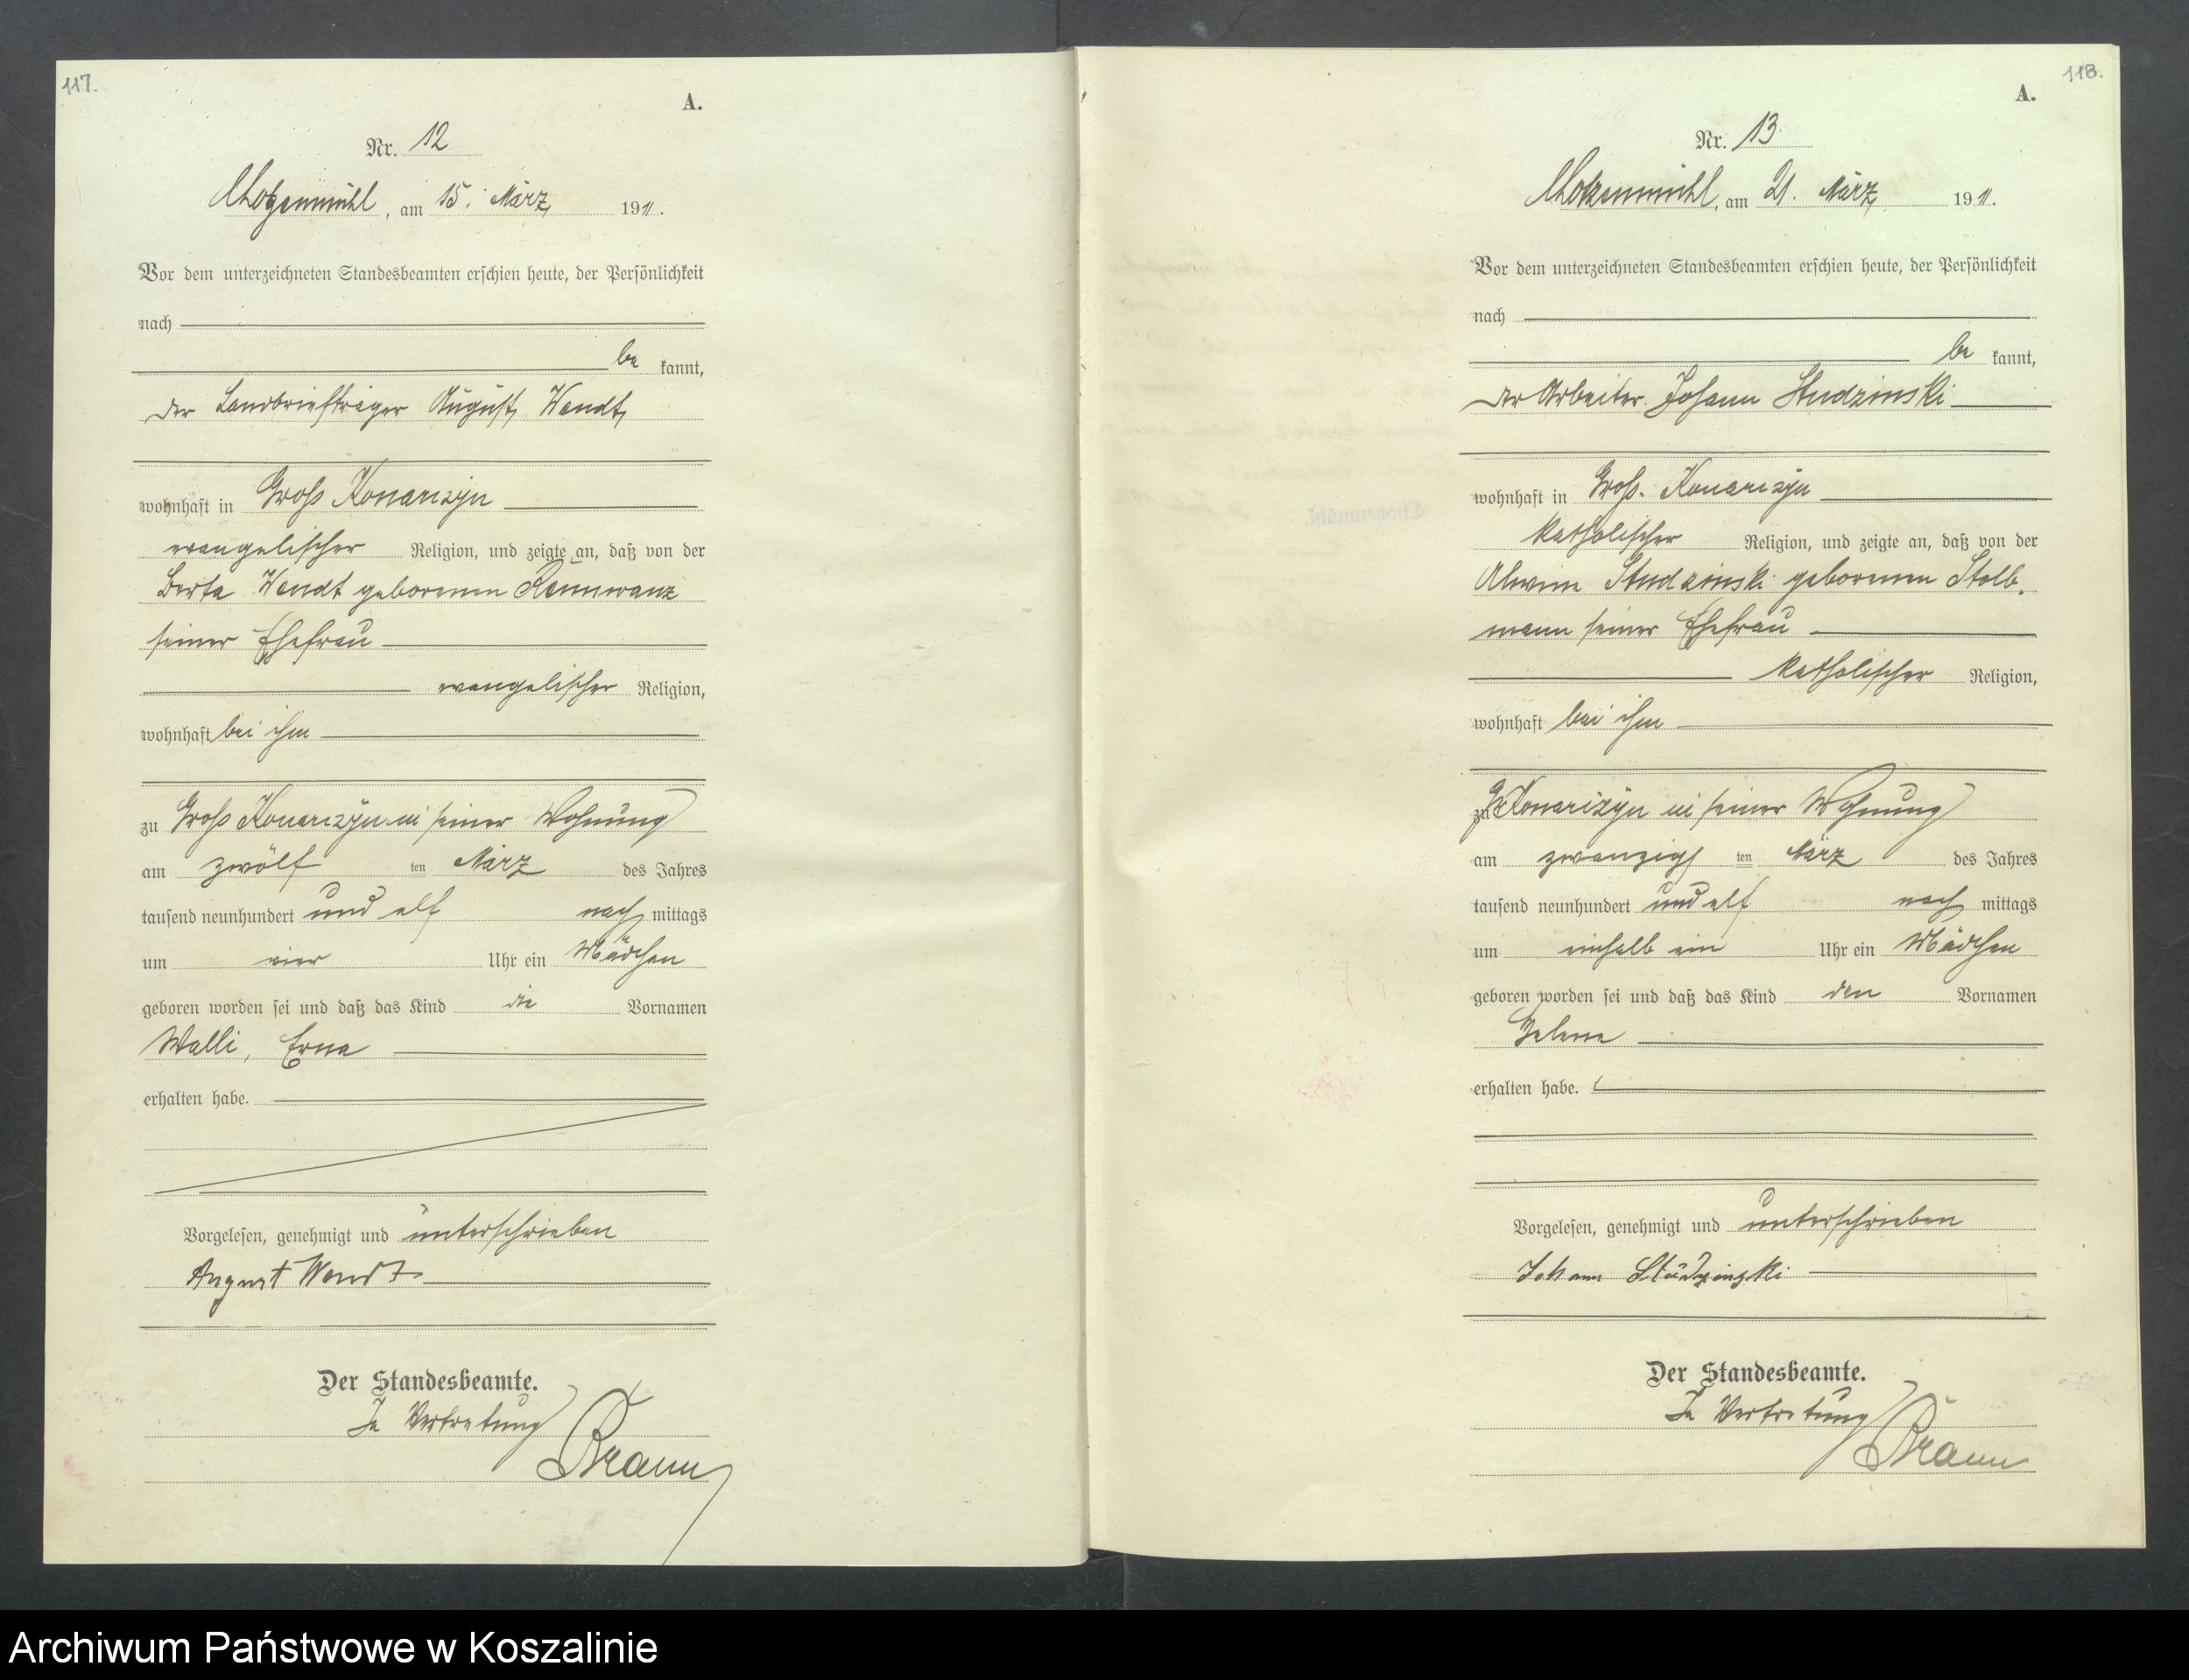 117.
A.
Nr. 12
Chotzenmühl, am 15. März 1911.
Vor dem unterzeichneten Standesbeamten erschien heute, der Persönlichkeit
nach
be kannt,
der Landbriefträger August Wendt
wohnhaft in Groß Konarczyn
evangelischer Religion, und zeigte an, daß von der
Berta Wendt geborenen Rennwanz
seiner Ehefrau
evangelischer Religion,
wohnhaft bei ihm
zu Groß Konarczyn in seiner Wohnung
am zwölf ten März des Jahres
tausend neunhundert und elf nach mittags
um vier Uhr ein Mädchen
geboren worden sei und daß das Kind die Vornamen
Walli, Erna
erhalten habe.
Vorgelesen, genehmigt und unterschrieben
August Wendt
Der Standesbeamte.
In Vertretung
Braun
118.
A.
Nr. 13.
Chotzenmühl, am 21. März 1911.
Vor dem unterzeichneten Standesbeamten erschien heute, der Persönlichkeit
nach
be kannt,
der Arbeiter Johann Studzinski
wohnhaft in Groß. Konarczyn
katholischer Religion, und zeigte an, daß von der
Studzinski geborenen Stolb-
mann seiner Ehefrau
katholischer Religion,
wohnhaft bei ihm
zu Gr Konarczyn in seiner Wohnung
am zwanzigs ten März des Jahres
tausend neunhundert und elf nach mittags
um einhalb ein Uhr ein Mädchen
geboren worden sei und daß das Kind den Vornamen
Helene
erhalten habe.
Vorgelesen, genehmigt und unterschrieben
Johann Studzinski
Der Standesbeamte.
In Vertretung
Braun
Archiwum Państwowe w Koszalinie